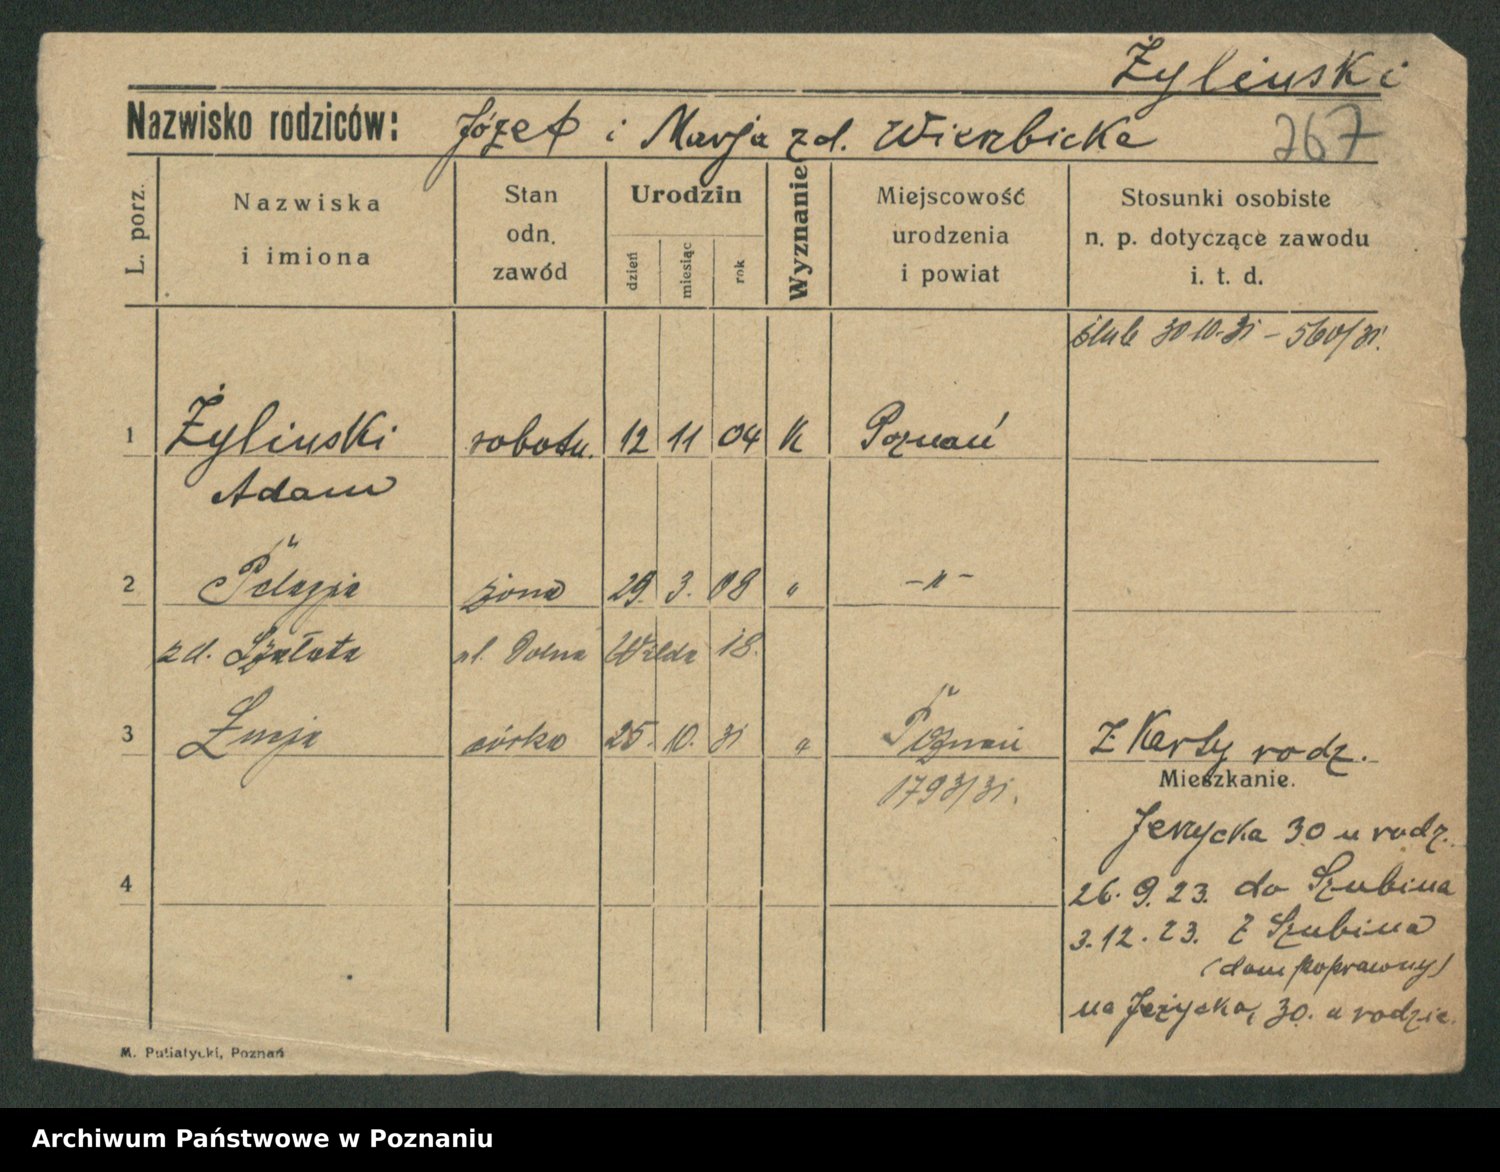 Żylinski
Nazwisko rodziców: Józef i Marja zd. Wierzbicka
267
L. porz.
Nazwiska i imiona
Stan odn. zawód
Urodzin
dzień
miesiąc
rok
Wyznanie
Miejscowość urodzenia i powiat
Stosunki osobiste n. p. dotyczące zawodu i. t. d.
ślub 30 10. 31 – 560/31.
1 Żylinski robotn. 12 11 04 K Poznań
Adam
2 " Pelagja żona 29. 3. 08 " –"–
zd. Szałata ul. Dolna Wilda 18.
3 Łucja córka 25. 10. 31 " Poznań Z Karty rodz.
1793/31.
Mieszkanie.
Jerzycka 30 u rodz.
4
26. 9. 23. do Szubina
3. 12. 23. z Szubina
(dom poprawny)
na Jeżycką, 30. u rodzic.
M. Putiatycki, Poznań
Archiwum Państwowe w Poznaniu